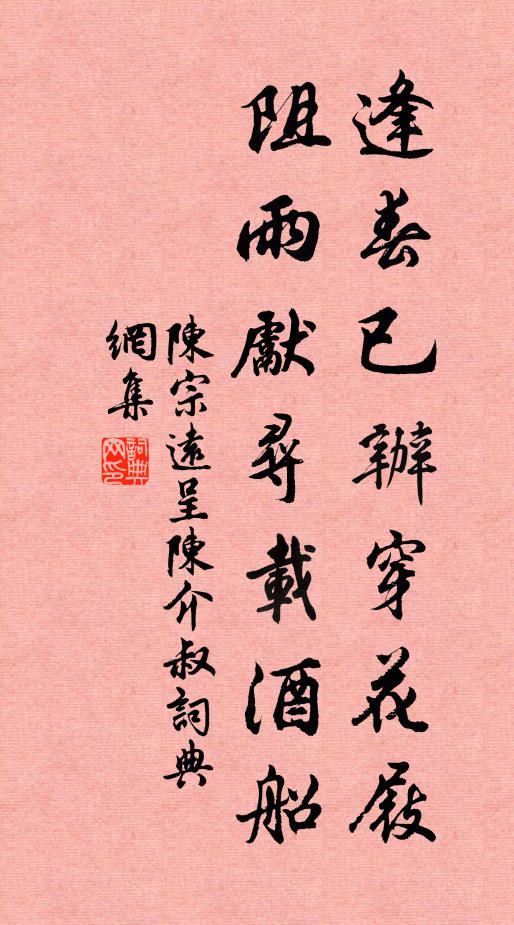 逢春已辦穿花屐
阻雨獻尋載酒船
陳宗遠呈陳介叔詞典
網集
詞典網印